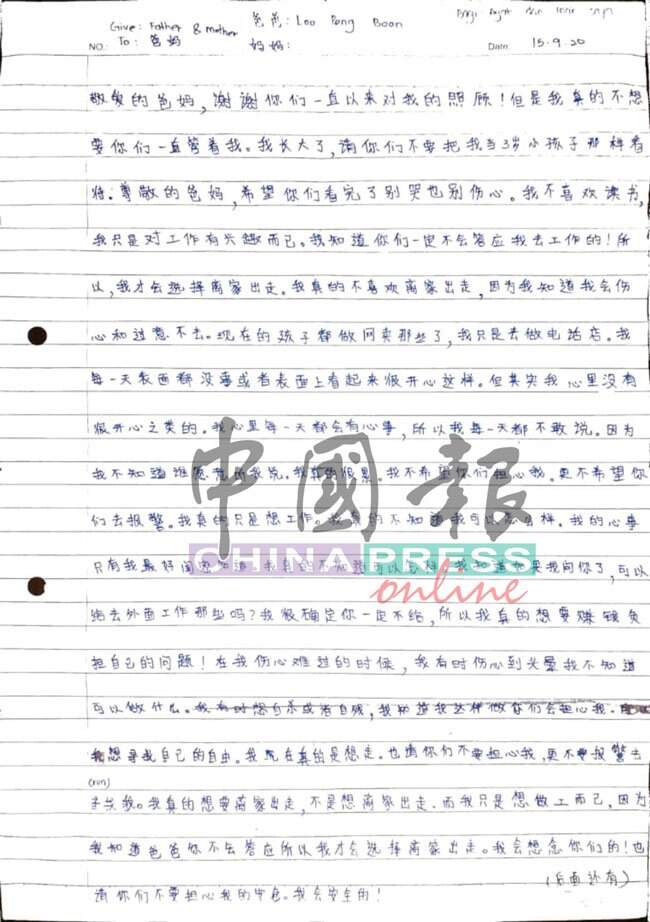 Give: Father & mother 爸爸: Loo Pong Boon
NO: To: 爸妈 妈妈: Date 15.9.20
敬爱的爸妈,谢谢你们一直以来对我的照顾!但是我真的不想
要你们一直管着我。我长大了,请你们不要把我当3岁小孩子那样看
待。尊敬的爸妈,希望你们看完了别哭也别伤心。我不喜欢读书,
我只是对工作有兴趣而已。我知道你们一定不会答应我去工作的!所
以,我才会选择离家出走。我真的不喜欢离家出走,因为我知道我会伤
心和过意不去。现在的孩子都做网卖那些了,我只是去做电话店。我
每一天表面都没事或者表面上看起来很开心这样。但其实我心里没有
很开心之类的。我心里每一天都会有心事,所以我每一天都不敢说。因为
我不知道谁愿意听我说。我真的很累。我不希望你们担心我。更不希望你
们去报警。我真的只是想工作。我真的不知道我可以怎样。我的心事
只有我最好的知道。我真的不知道可以怎样。我知道如果我问你了,可以
给去外面工作那些吗?我很确定你一定不给,所以我真的想要赚钱负
担自己的问题!在我伤心难过的时候,我有时伤心到头晕我不知道
可以做什么。我有时想自杀或者自残,我知道我这样做你们会担心我。
我想寻找自己的自由。我现在真的是想走。也请你们不要担心我,更不要报警去
(run)
寻找我。我真的想要离家出走,不是想离家出走.而我只是想做工而已,因为
我知道爸爸你不会答应所以我才会选择离家出走。我会想念你们的!也
请你们不要担心我的安危。我会安全的! (后面还有)
中國報
CHINA PRESS
online